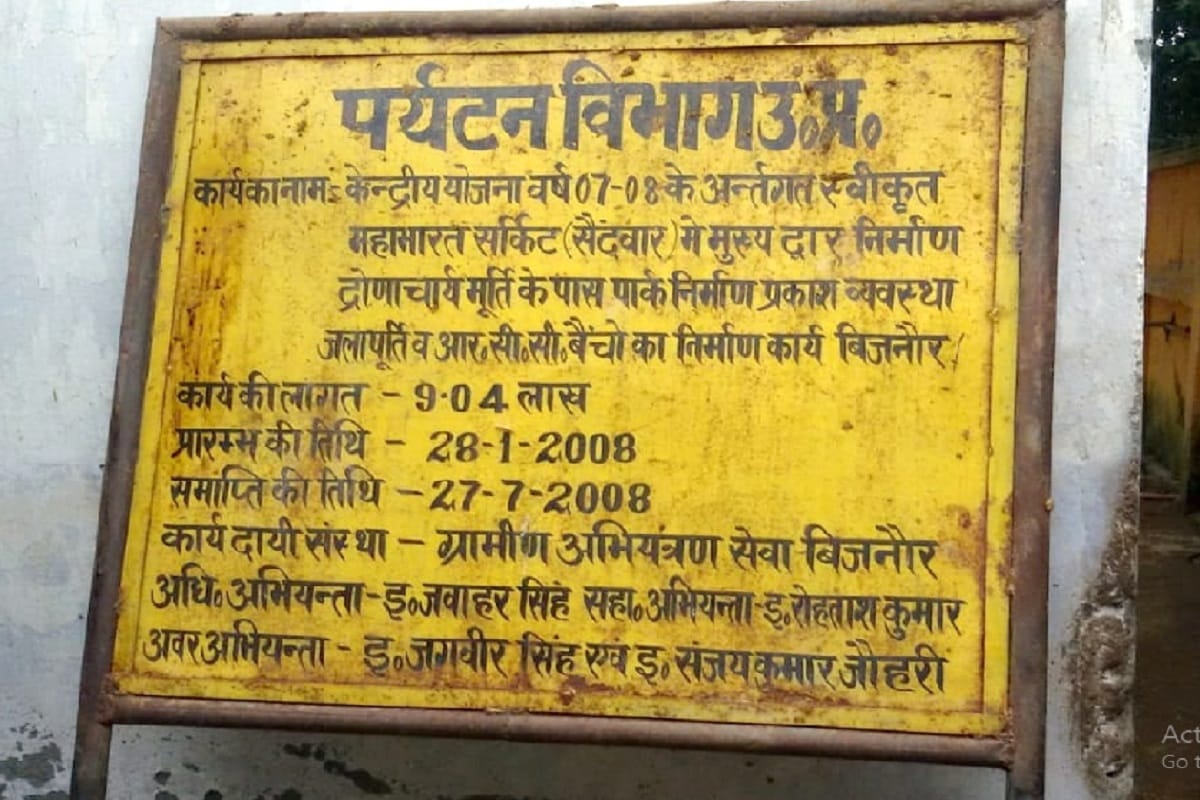 पर्यटन विभाग उ॰प्र॰
कार्य का नाम:- केन्द्रीय योजना वर्ष 07-08 के अर्न्तगत स्वीकृत
महाभारत सर्किट (सैदवार) मे मुख्य द्वार निर्माण
द्रोणाचार्य मूर्ति के पास पार्क निर्माण प्रकाश व्यवस्था
जलापूर्ति व आर॰सी॰सी॰ बैंचो का निर्माण कार्य बिजनौर/
कार्य की लागत - 9.04 लाख
प्रारम्भ की तिथि - 28-1-2008
समाप्ति की तिथि - 27-7-2008
कार्य दायी संस्था - ग्रामीण अभियंत्रण सेवा बिजनौर
अधि॰ अभियन्ता - इ॰ जवाहर सिंह सहा॰ अभियन्ता - इ॰ रोहताश कुमार
अवर अभियन्ता - इ॰ जगवीर सिंह एवं इ॰ संजय कुमार जौहरी
Act
Go t